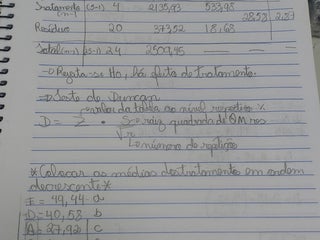 Tratamento (5-1) 4 2135,93 533,98
(n-1) 28,58 2,87
Resíduo 20 373,52 18,68
Total (n-1) (25-1) 24 2509,45 — —
→ Rejeita-se Ho, há efeito de tratamento.
⇒ Teste de Duncan
tabela ao nível %
D = Z . S → raiz quadrada do QM res
√r
↳ número de repetições
*Colocar as médias dos tratamentos em ordem
decrescente*
E = 49,44 a
D = 40,58 b
A = 27,92 c